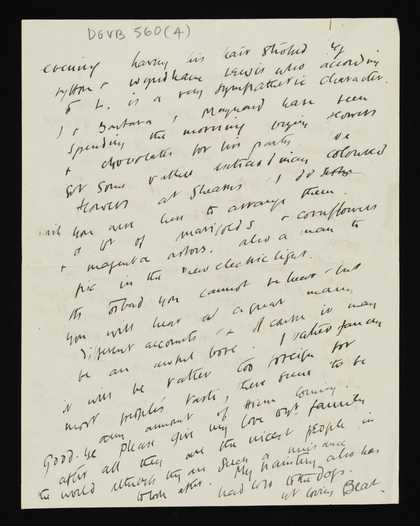 DGVB 560(4)
evening having his hair stroked by
Lytton & Wyndham Lewis who according
to L. is a very sympathetic character.
I & Barbara & Maynard have been
spending the morning buying flowers
& chocolates for his party. We
got some rather extraordinary coloured
flowers at Shearns I do
wish you were here to arrange them.
a lot of marigolds & cornflowers
& magenta asters. also a man to
fix in the new electric light.
It's so sad you cannot be here but
you will hear a great many
different accounts & of course it may
be an awful bore. I rather fancy
it will be rather too foreign for
most people's taste, there seems to be
any amount of
Good-bye Please give my love to yr family
after all they are the nicest people in
the world although they are such a nuisance
to look after. My painting also has
had to go to the dogs.
yr loving Bear.